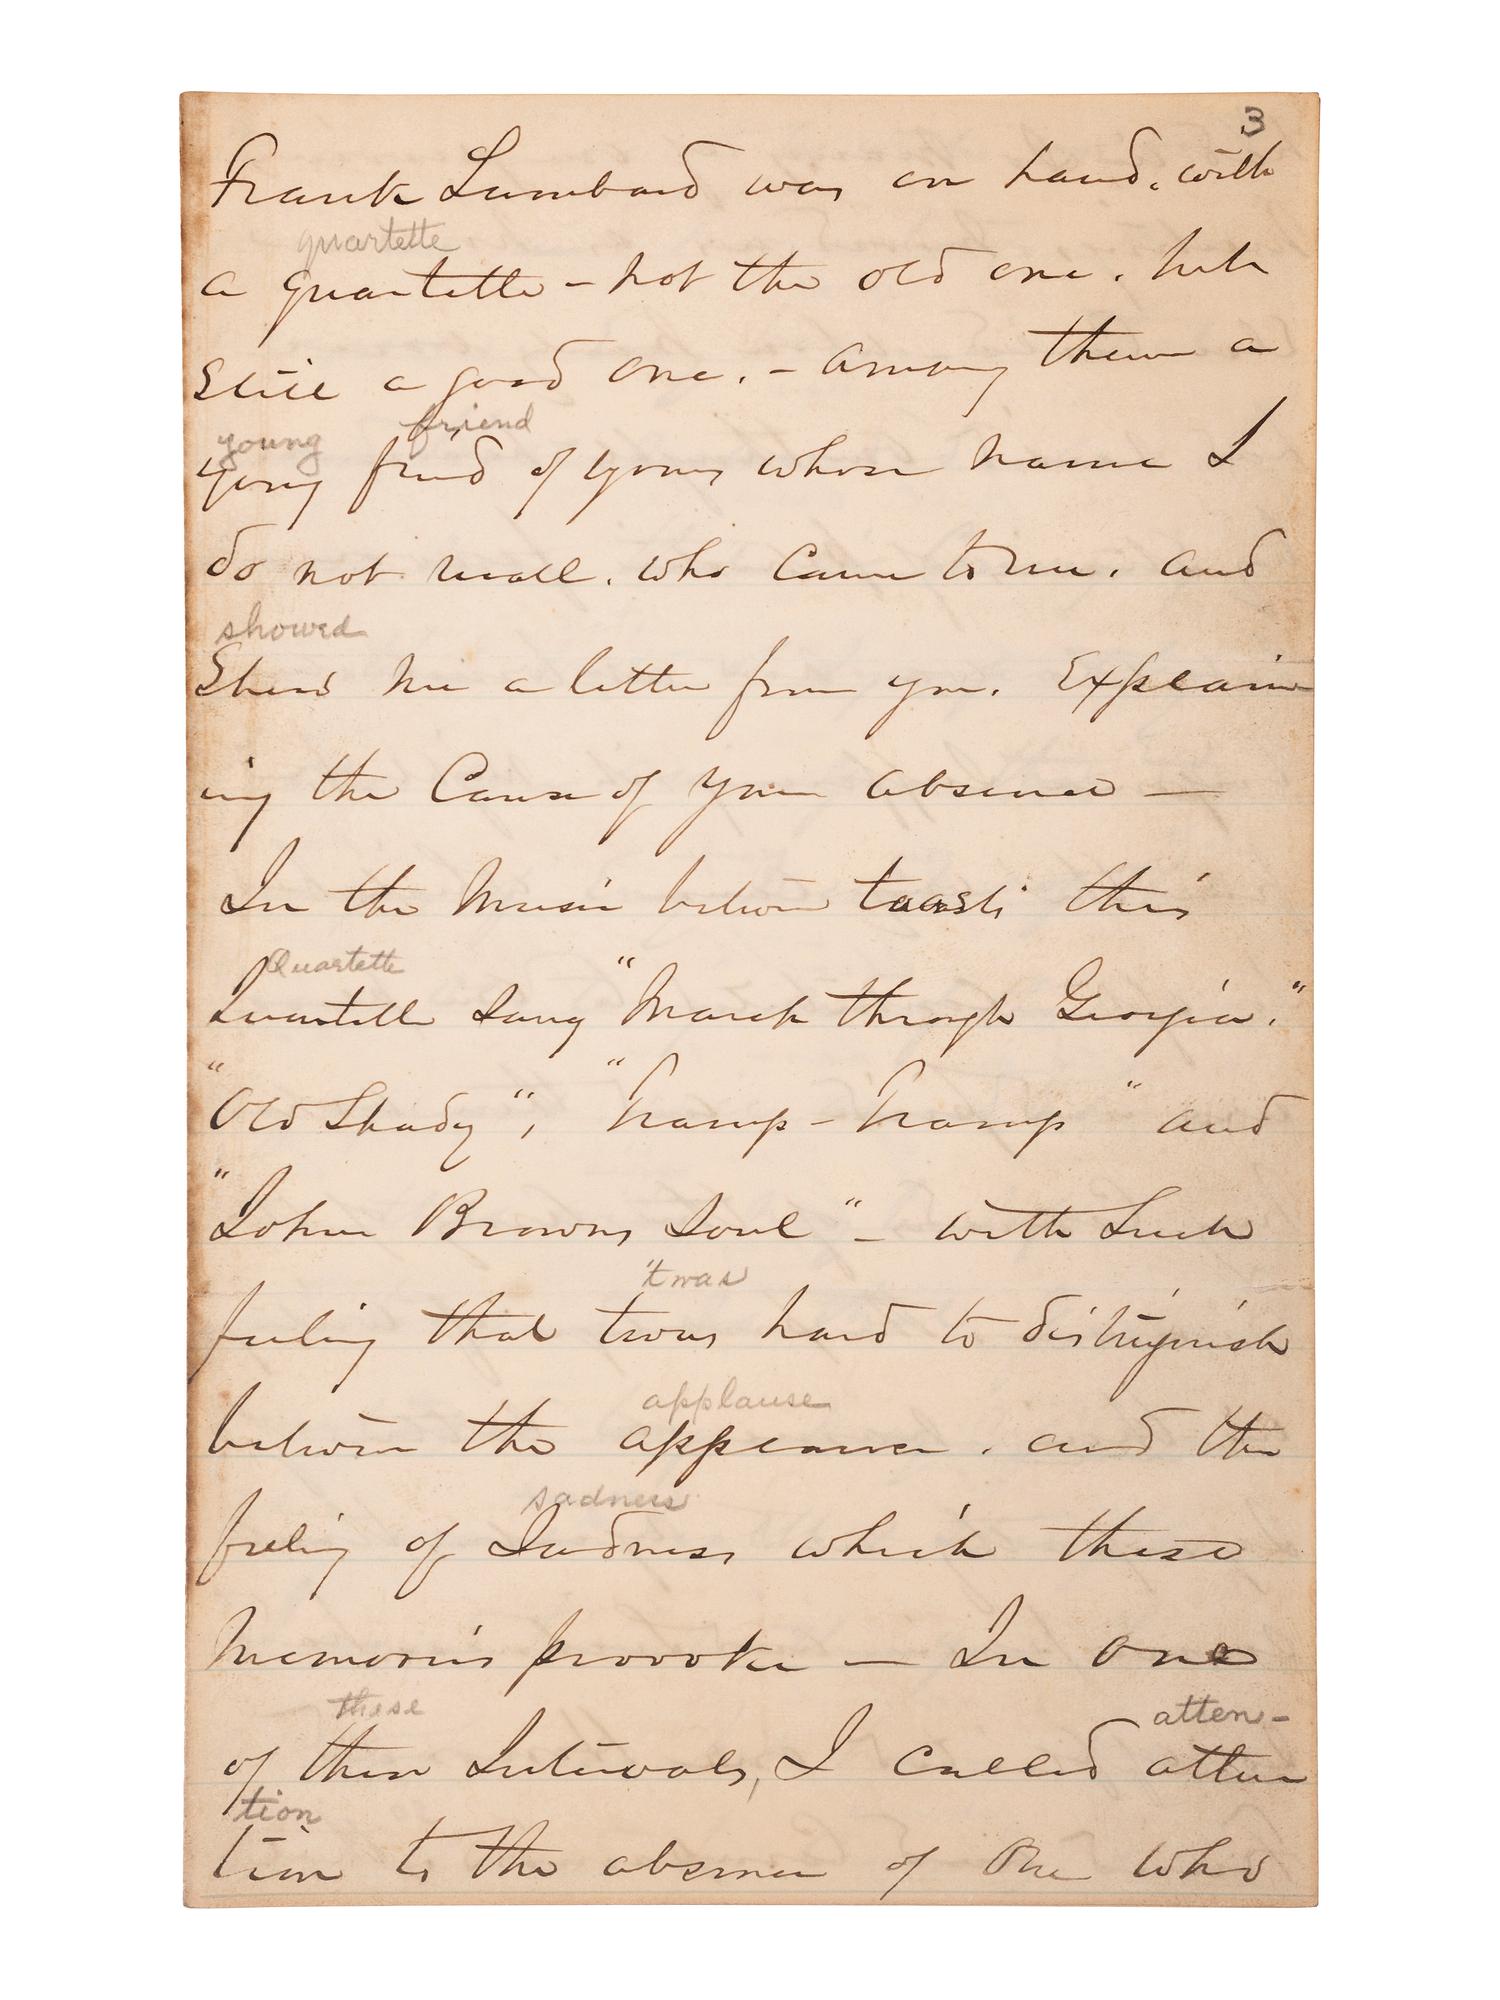 3
Frank Lumbard was on hand, with
quartette
a quartette - not the old one, but
still a good one. - among them a
young friend
young friend of yours whose name I
do not recall, who came to me, and
showed
Shewd me a letter from you. Explain
ing the Cause of your absence —
In the Music between toasts this
Quartette
Quartette sang "March through Georgia,"
"Old Shady", "Tramp - Tramp" and
"John Browns Soul" - with such
'twas
feeling that twas hard to distinguish
applause
between the applause, and the
sadness
feeling of Sadness which these
Memories provoke — In one
these atten-
of these Intervals, I called atten
tion
tion to the absence of one who